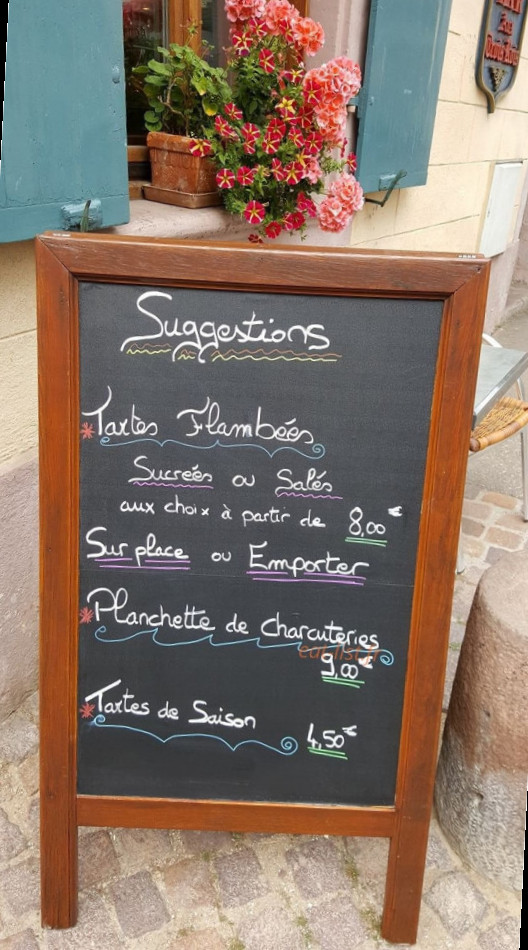 Suggestions
* Tartes Flambées
Sucrées ou Salés
aux choix à partir de 8,00€
Sur place ou Emporter
* Planchette de charcuteries
eat-list.fr
9,00€
* Tartes de Saison
4,50€